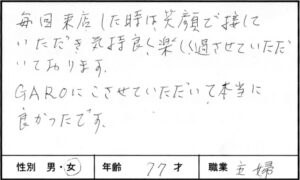 毎回来店した時は笑顔で接して
いただき気持良く、楽しく過させていただ
いております。
GAROにこさせていただいて本当に
良かったです。
性別 男・女 年齢 77才 職業 主婦